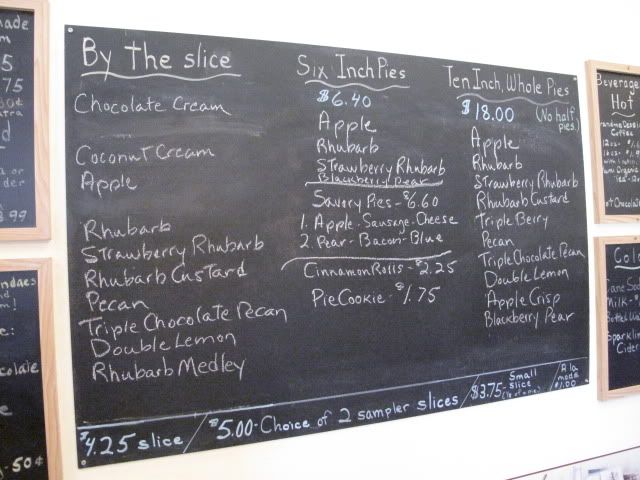 By the slice
Chocolate Cream
Coconut Cream
Apple
Rhubarb
Strawberry Rhubarb
Rhubarb Custard
Pecan
Triple Chocolate Pecan
Double Lemon
Rhubarb Medley
Six Inch Pies
$6.40
Apple
Rhubarb
Strawberry Rhubarb
Blackberry Pear
Savory Pies - $6.60
1. Apple-Sausage-Cheese
2. Pear-Bacon-Blue
Cinnamon Rolls - $2.25
Pie Cookie - $1.75
Ten Inch, Whole Pies
$18.00 (No half pies.)
Apple
Rhubarb
Strawberry Rhubarb
Rhubarb Custard
Triple Berry
Pecan
Triple Chocolate Pecan
Double Lemon
Apple Crisp
Blackberry Pear
$4.25 slice / $5.00-Choice of 2 sampler slices / $3.75-
Small
slice
A la
mode
$1.00
Beverage
Hot
Coffee